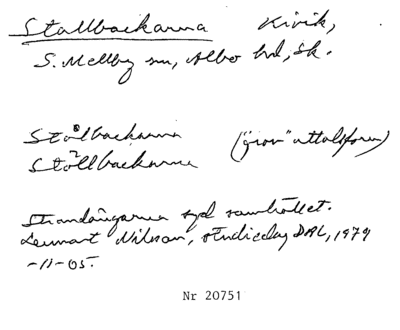 Stallbackarna Kivik,
S. Mellby sn, Albo hd, Sk.
Stålbackarna ("grov" uttalsform)
Stållbackarna
Strandängarna syd samhället.
Lennart Nilsson, studiedag DAL, 1979
-11-05.
Nr 20751